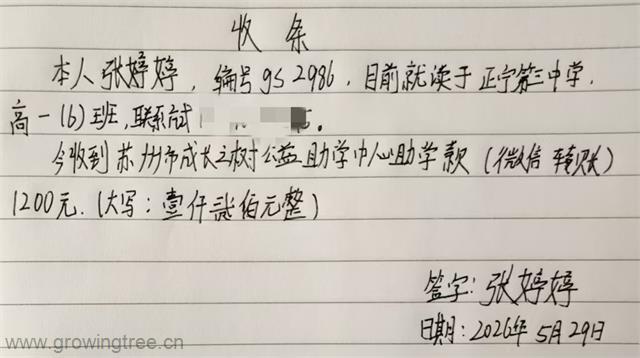 收条
本人张婷婷，编号gs2986，目前就读于正宁第三中学，
高一(6)班，联系方式1
今收到苏州市成长之树公益助学中心助学款（微信转账）
1200元.(大写：壹仟贰佰元整)
签字：张婷婷
日期：2026年5月29日
www.growingtree.cn